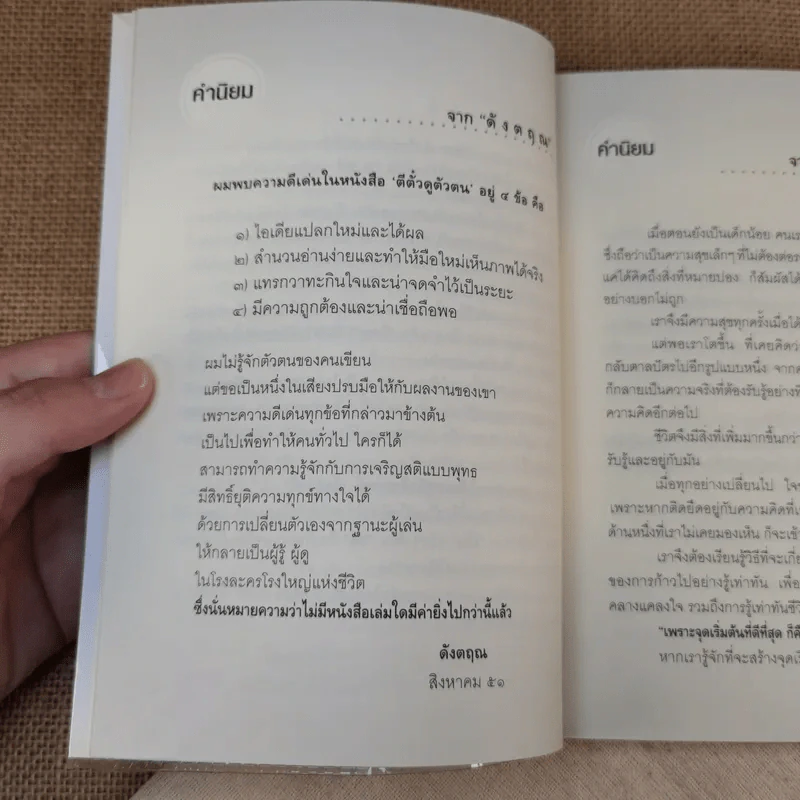 คำนิยม
จาก "ดั ง ต ฤ ณ"
ผมพบความดีเด่นในหนังสือ 'ตีตั๋วดูตัวตน' อยู่ ๔ ข้อ คือ
๑) ไอเดียแปลกใหม่และได้ผล
๒) สำนวนอ่านง่ายและทำให้มือใหม่เห็นภาพได้จริง
๓) แทรกวาทะกินใจและน่าจดจำไว้เป็นระยะ
๔) มีความถูกต้องและน่าเชื่อถือพอ
ผมไม่รู้จักตัวตนของคนเขียน
แต่ขอเป็นหนึ่งในเสียงปรบมือให้กับผลงานของเขา
เพราะความดีเด่นทุกข้อที่กล่าวมาข้างต้น
เป็นไปเพื่อทำให้คนทั่วไป ใครก็ได้
สามารถทำความรู้จักกับการเจริญสติแบบพุทธ
มีสิทธิ์ยุติความทุกข์ทางใจได้
ด้วยการเปลี่ยนตัวเองจากฐานะผู้เล่น
ให้กลายเป็นผู้รู้ ผู้ดู
ในโรงละครโรงใหญ่แห่งชีวิต
ซึ่งนั่นหมายความว่าไม่มีหนังสือเล่มใดมีค่ายิ่งไปกว่านี้แล้ว
ดังตฤณ
สิงหาคม ๕๑
คำนิยม
เมื่อตอนยังเป็นเด็กน้อย
ซึ่งถือว่าเป็นความสุขเล็กๆ ที่ไม่ต้องต่อ
แค่ได้คิดถึงสิ่งที่หมายปอง ก็สัมผัสได้
อย่างบอกไม่ถูก
เราจึงมีความสุขทุกครั้งเมื่อได้
แต่พอเราโตขึ้น ที่เคยคิดว่า
กลับตาลปัตรไปอีกรูปแบบหนึ่ง จาก
ก็กลายเป็นความจริงที่ต้องรับรู้อย่าง
ความคิดอีกต่อไป
ชีวิตจึงมีสิ่งที่เพิ่มมากขึ้นกว่า
รับรู้และอยู่กับมัน
เมื่อทุกอย่างเปลี่ยนไป
เพราะหากติดยึดอยู่กับความคิดที่
ด้านหนึ่งที่เราไม่เคยมองเห็น ก็จะเข้า
เราจึงต้องเรียนรู้วิธีที่จะ
ของการก้าวไปอย่างรู้เท่าทัน เพื่อ
คลางแคลงใจ รวมถึงการรู้เท่าทันชีวิต
"เพราะจุดเริ่มต้นที่ดีที่สุด ก็คือ
หากเรารู้จักที่จะสร้างจุด